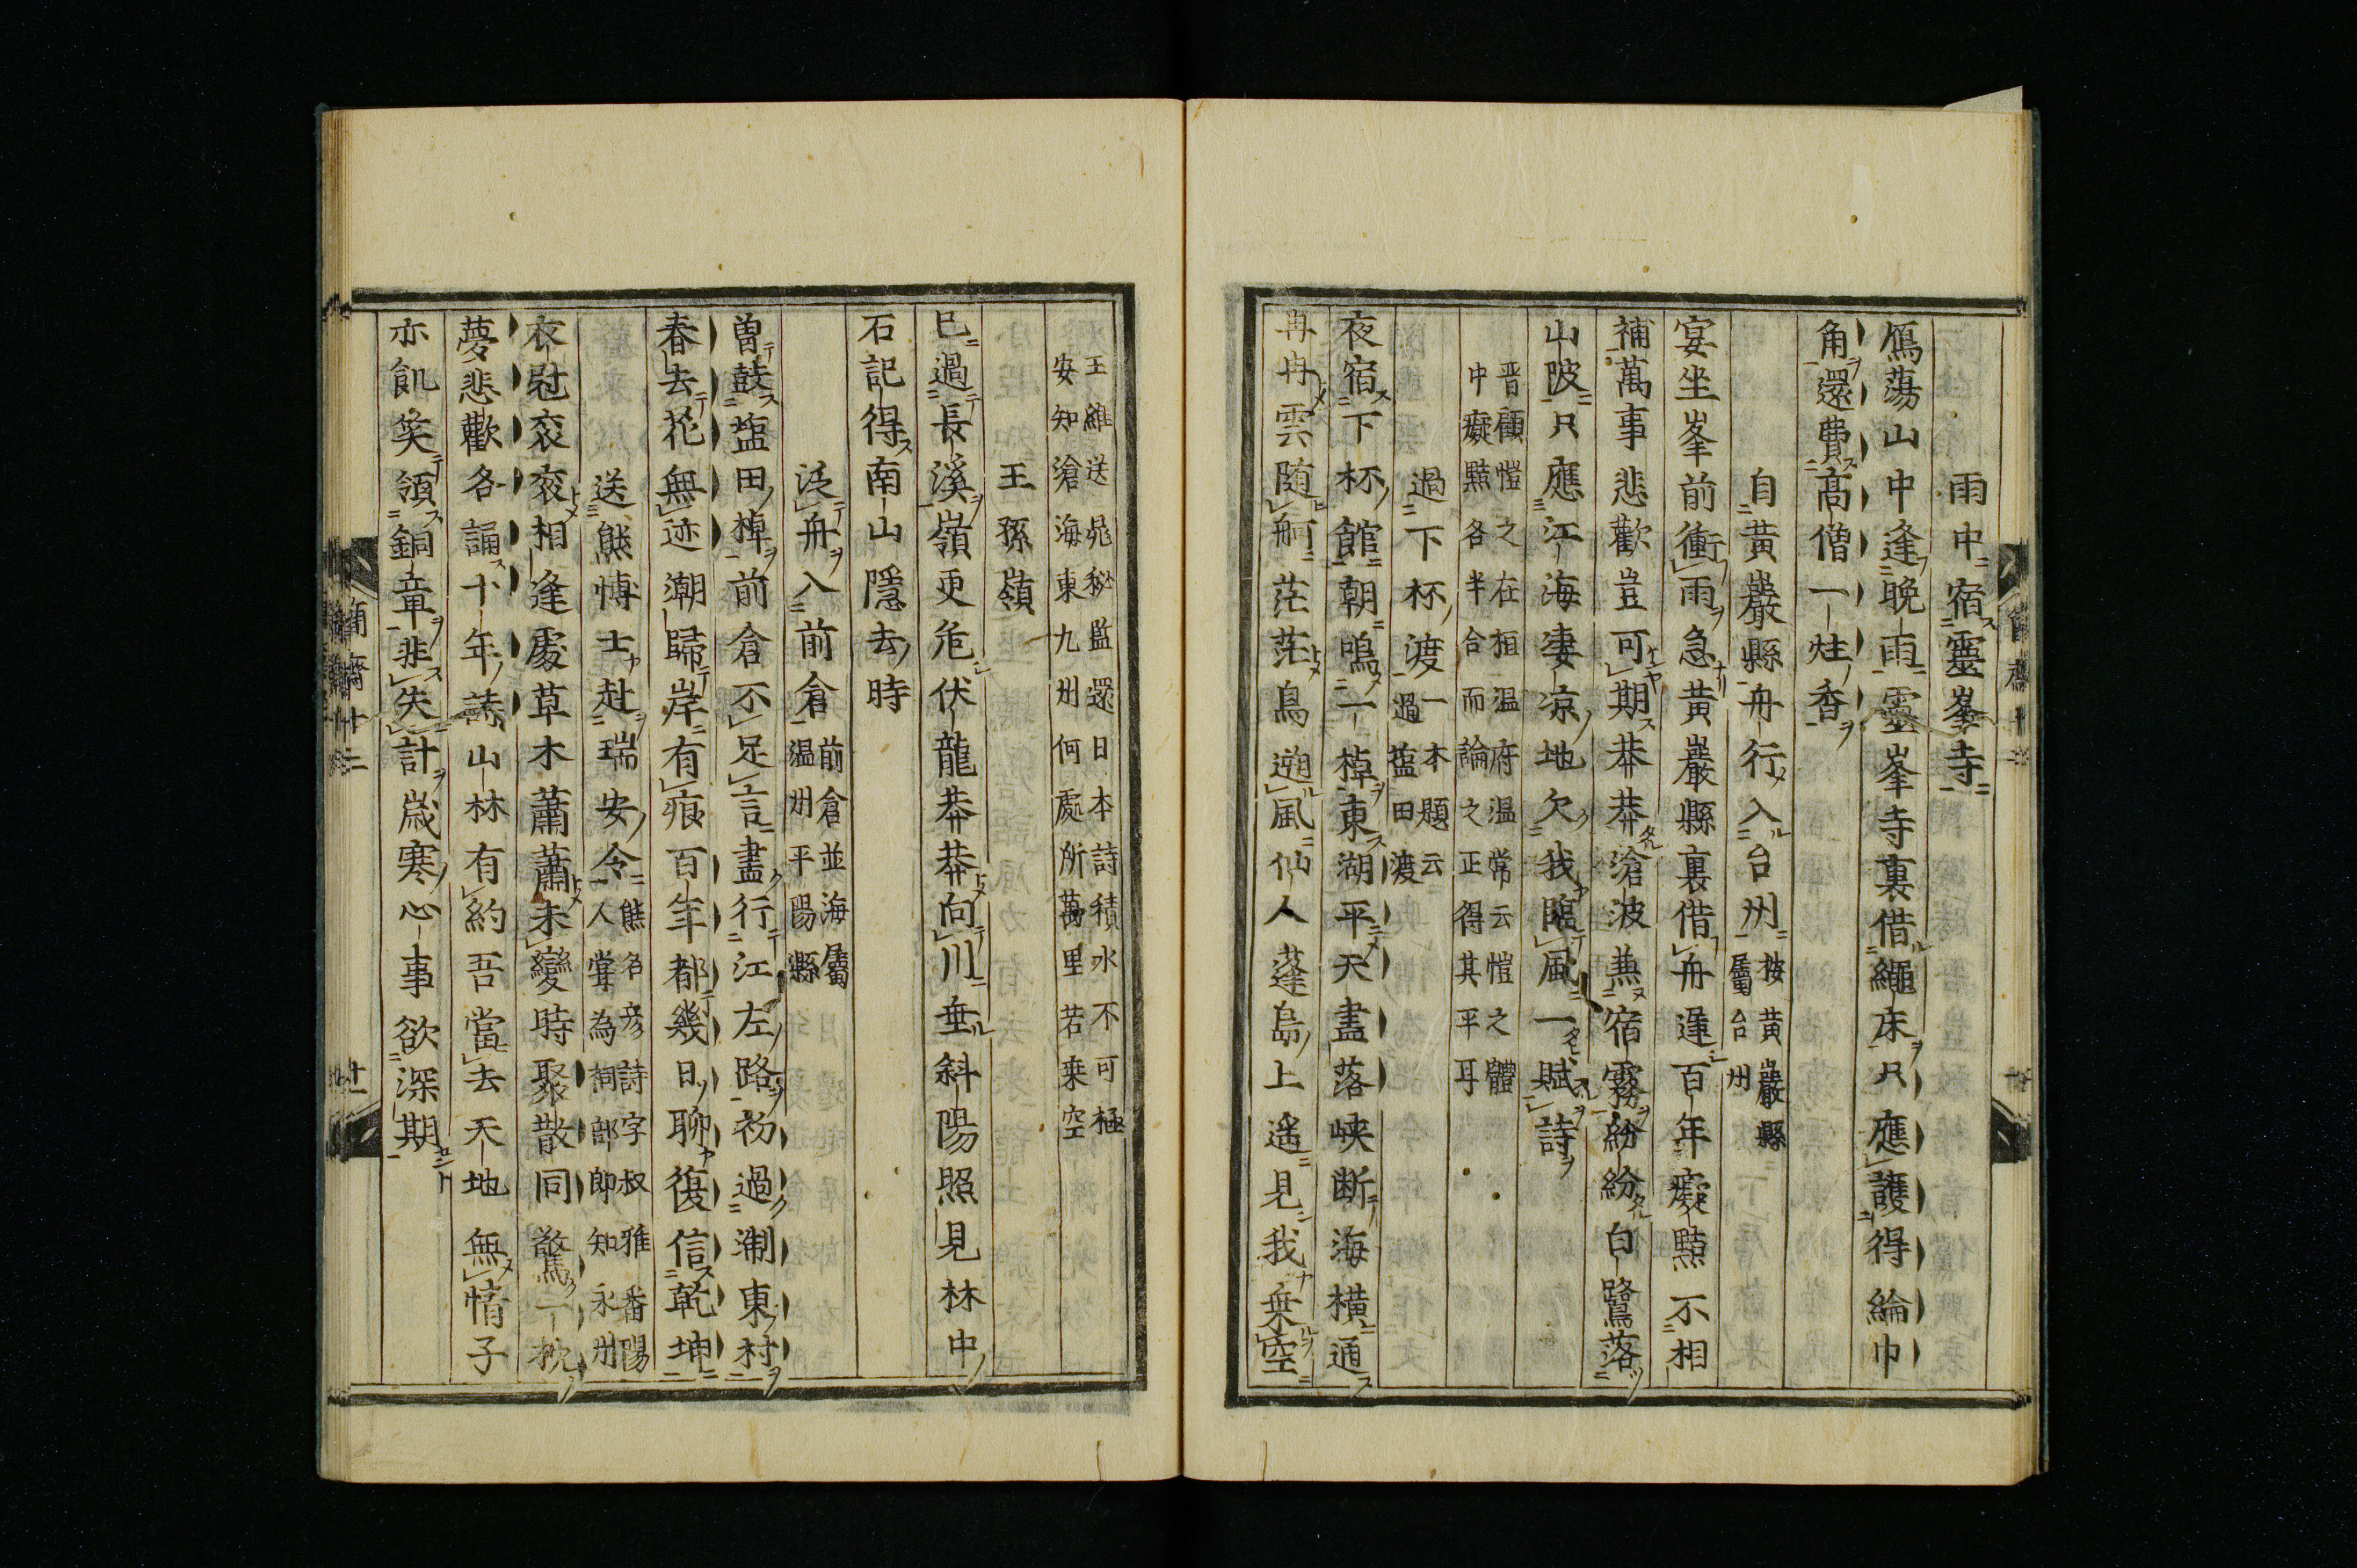 雨中宿靈峯寺
鴈蕩山中逢晩雨靈峯寺裏借繩床只應護得綸巾
角還費髙僧一炷香
自黄巖縣舟行入台州按黄巖縣屬台州
宴坐峯前衝雨急黄巖縣裏借舟遲百年癡黠不相
補萬事悲歡豈可期莽莽滄波兼宿霧紛紛白鷺落
山陂只應江海凄凉地欠我臨風一賦詩
晋顧愷之在桓温府温常云愷之體
中癡黠各半合而論之正得其平耳
過下杯渡一本題云過藍田渡
夜宿下杯館朝鳴一棹東湖平天盡落峡断海横通
冉冉雲随舸茫茫鳥遡風仙人蓬島上遥見我乗空
王維送晁秘監還日本詩積水不可極
安知滄海東九州何處所萬里若乗空
王孫嶺
已過長溪嶺更危伏龍莽莽向川垂斜陽照見林中
石記得南山隠去時
泛舟入前倉前倉並海屬温州平陽縣
曽鼓塩田棹前倉不足言盡行江左路初過淛東村
春去花無迹潮歸岸有痕百年都幾日聊復信乾坤
送熊愽士赴瑞安令熊名彦詩字叔雅番陽人嘗為祠部郎知永州
衣冠衮衮相逢處草木蕭蕭未變時聚散同驚一枕
夢悲歡各誦十年詩山林有約吾當去天地無情子
亦飢笑領銅章非失計歳寒心事欲深期
簡齋十二
廿一